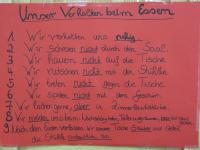 Unser Verhalten beim Essen
1 Wir verhalten uns ruhig.
2 Wir schreien nicht durch den Saal.
3 Wir hauen nicht auf die Tische.
4 Wir rutschen nicht mit den Stühlen.
5 Wir treten nicht gegen die Tische.
6 Wir spielen nicht mit dem
7 Wir reden gerne, aber in Zimmerlautstärke.
8 Wir
9 Nach dem Essen verlassen wir unsere Tische
die Stühle